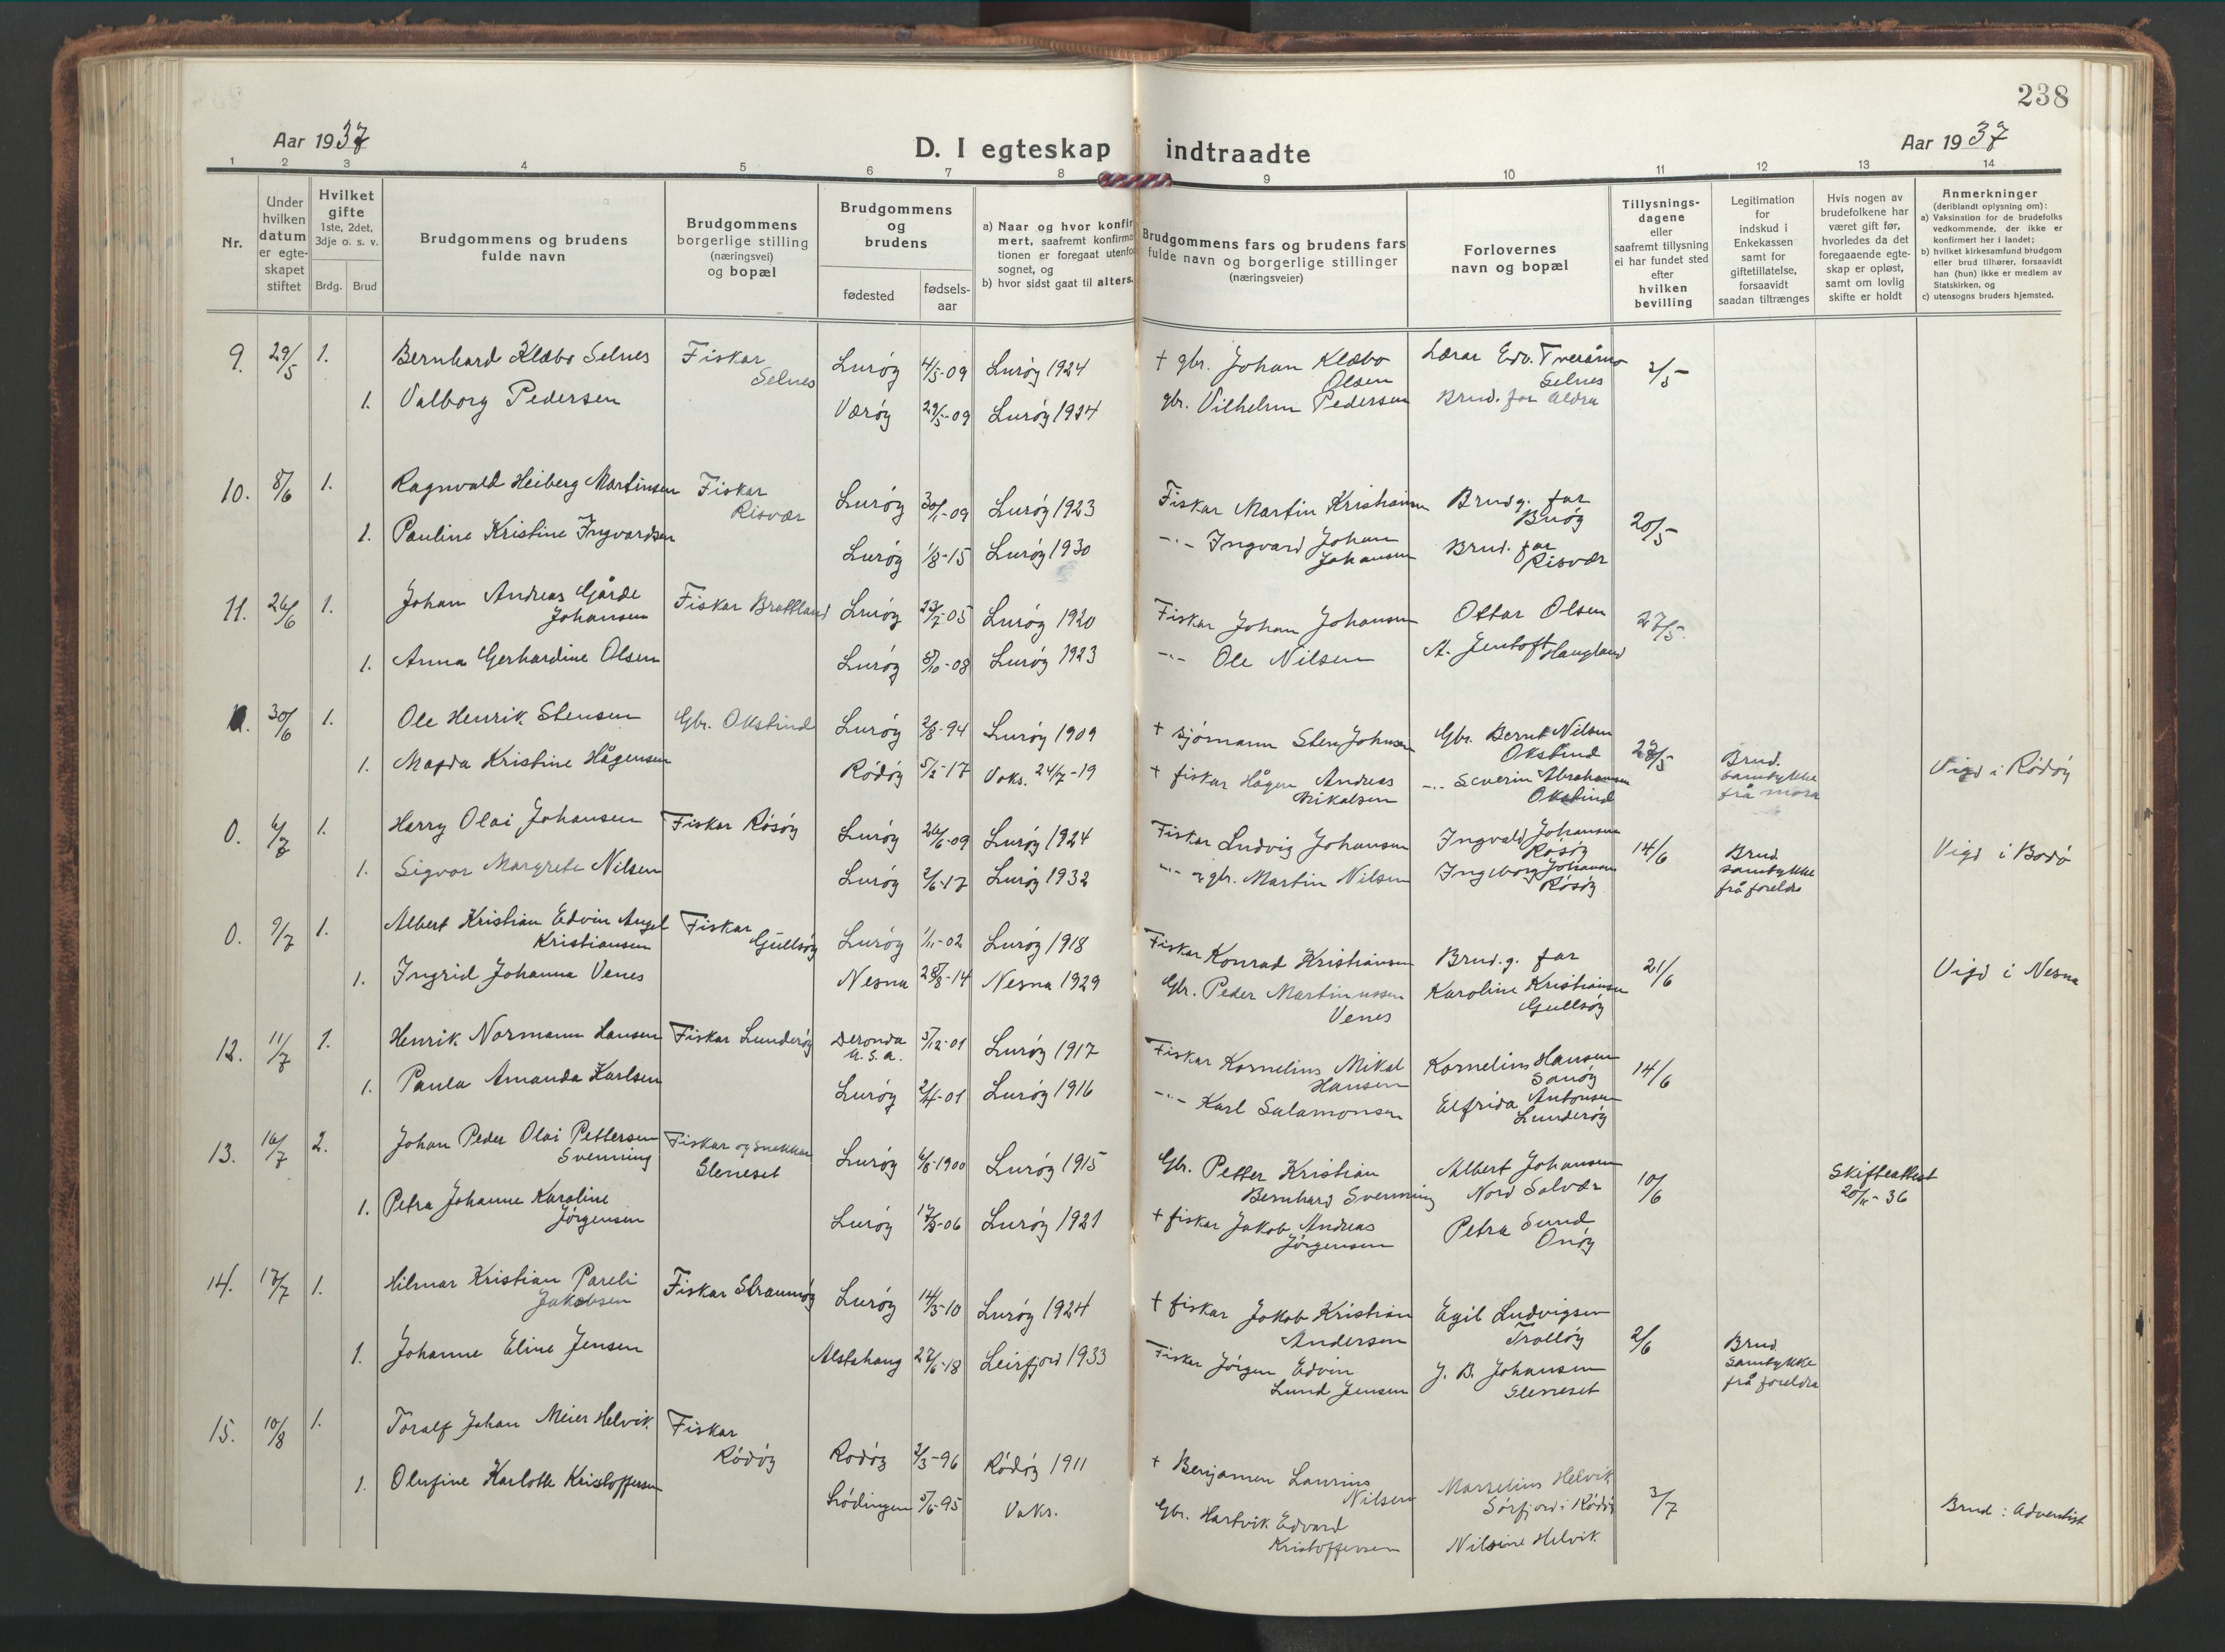 238
Aar 1937
D. I egteskap indtraadte
Aar 1937
1 2 3 4 5 6 7 8 9 10 11 12 13 14
Nr.
Under hvilken datum er egteskapet stiftet
Hvilket gifte 1ste, 2det, 3dje o. s. v.
Brdg. Brud
Brudgommens og brudens fulde navn
Brudgommens borgerlige stilling (næringsvei) og bopæl
Brudgommens og brudens
fødested
fødselsaar
a) Naar og hvor konfirmert, saafremt konfirmationen er foregaat utenfor sognet, og
b) hvor sidst gaat til alters.
Brudgommens fars og brudens fars fulde navn og borgerlige stillinger (næringsveier)
Forlovernes navn og bopæl
Tillysningsdagene eller saafremt tillysning ei har fundet sted efter hvilken bevilling
Legitimation for indskud i Enkekassen samt for giftetillatelse, forsaavidt saadan tiltrænges
Hvis nogen av brudefolkene har været gift før, hvorledes da det foregaaende egteskap er opløst, samt om lovlig skifte er holdt
Anmerkninger (deriblandt oplysning om):
a) Vaksination for de brudefolks vedkommende, der ikke er konfirmert her i landet;
b) hvilket kirkesamfund brudgom eller brud tilhører, forsaavidt han (hun) ikke er medlem av Statskirken, og
c) utensogns bruders hjemsted.
9. 29/5 1. Bernhard Klæbo Selnes Fiskar Selnes Lurøy 4/5-09 Lurøy 1924 † gbr. Johan Klæbo Olsen Lærar Edv. Tveråmo Selnes 2/5
1. Valborg Pedersen Værøy 29/5-09 Lurøy 1924 gbr. Vilhelm Pedersen Brud. far Aldra
10. 8/6 1. Ragnvald Heiberg Martinsen Fiskar Risvær Lurøy 30/1-09 Lurøy 1923 Fiskar Martin Kristiansen Brudg. far Buøy 20/5
1. Pauline Kristine Ingvardsen Lurøy 1/8-15 Lurøy 1930 -"- Ingvard Johan Johansen Brud. far Risvær
11. 26/6 1. Johan Andreas Gårde Johansen Fiskar Brattland Lurøy 23/7-05 Lurøy 1920 Fiskar Johan Johansen Ottar Olsen 27/5
1. Anna Gerhardine Olsen Lurøy 8/10-08 Lurøy 1923 -"- Ole Nilsen A. Jentoft Haugland
30/6 1. Ole Henrik Stensen Gbr. Okstind Lurøy 2/8-94 Lurøy 1909 † sjømann Sten Johnsen Gbr. Bernt Nilsen Okstind 28/5
1. Magda Kristine Hågensen Rødøy 5/2-17 Vaks. 24/7-19 † fiskar Hågen Andreas Mikalsen -"- Severin Abrahamsen Okstind Brud. samtykke frå mora Vigd i Rødøy
0. 6/7 1. Harry Olai Johansen Fiskar Røsøy Lurøy 26/6-09 Lurøy 1924 Fiskar Ludvig Johansen Ingvald Johansen Røsøy 14/6 Brud samtykke frå foreldre Vigd i Bodø
1. Sigvor Margrete Nilsen Lurøy 2/6-17 Lurøy 1932 -"- gbr. Martin Nilsen Ingeborg Johansen Røsøy
0. 9/7 1. Albert Kristian Edvin Angel Kristiansen Fiskar Gullsøy Lurøy 1/11-02 Lurøy 1918 Fiskar Konrad Kristiansen Brud.g. far 21/6 Vigd i Nesna
1. Ingrid Johanna Venes Nesna 28/8-14 Nesna 1929 Gbr. Peder Martinussen Venes Karoline Kristiansen Gullsøy
12. 11/7 1. Henrik Normann Hansen Fiskar Lunderøy Deronda U.S.A. 3/12-01 Lurøy 1917 Fiskar Kornelius Mikal Hansen Kornelius Hansen Sanøy 14/6
1. Paula Amanda Karlsen Lurøy 2/4-01 Lurøy 1916 -"- Karl Salamonsen Elfrida Antonsen Lunderøy
13. 16/7 2. Johan Peder Olai Pettersen Svenning Fiskar og snekkar Sleneset Lurøy 6/8-1900 Lurøy 1915 Gbr. Petter Kristian Bernhard Svenning Albert Johansen Nord Solvær 10/6 Skifteattest 20/11-36
1. Petra Johanne Karoline Jørgensen Lurøy 17/5-06 Lurøy 1921 † fiskar Jakob Andreas Jørgensen Petra Sund Onøy
14. 17/7 1. Hilmar Kristian Pareli Jakobsen Fiskar Straumøy Lurøy 14/3-10 Lurøy 1924 † fiskar Jakob Kristian Andersen Egil Ludvigsen Trolløy 2/6
1. Johanne Eline Jensen Alstahaug 27/6-18 Leirfjord 1933 Fiskar Jørgen Edvin Lund Jensen J. B. Johansen Sleneset Brud samtykke frå foreldre
15. 10/8 1. Toralf Johan Meier Helvik Fiskar Rødøy Rødøy 2/3-96 Rødøy 1911 † Benjamin Laurius Nilsen Marselius Helvik Sørfjord i Rødøy 3/7
1. Olufine Karlotte Kristoffersen Lødingen 5/6-95 Vaks. Gbr. Hartvik Edvard Kristoffersen Nilsine Helvik Brud: Adventist